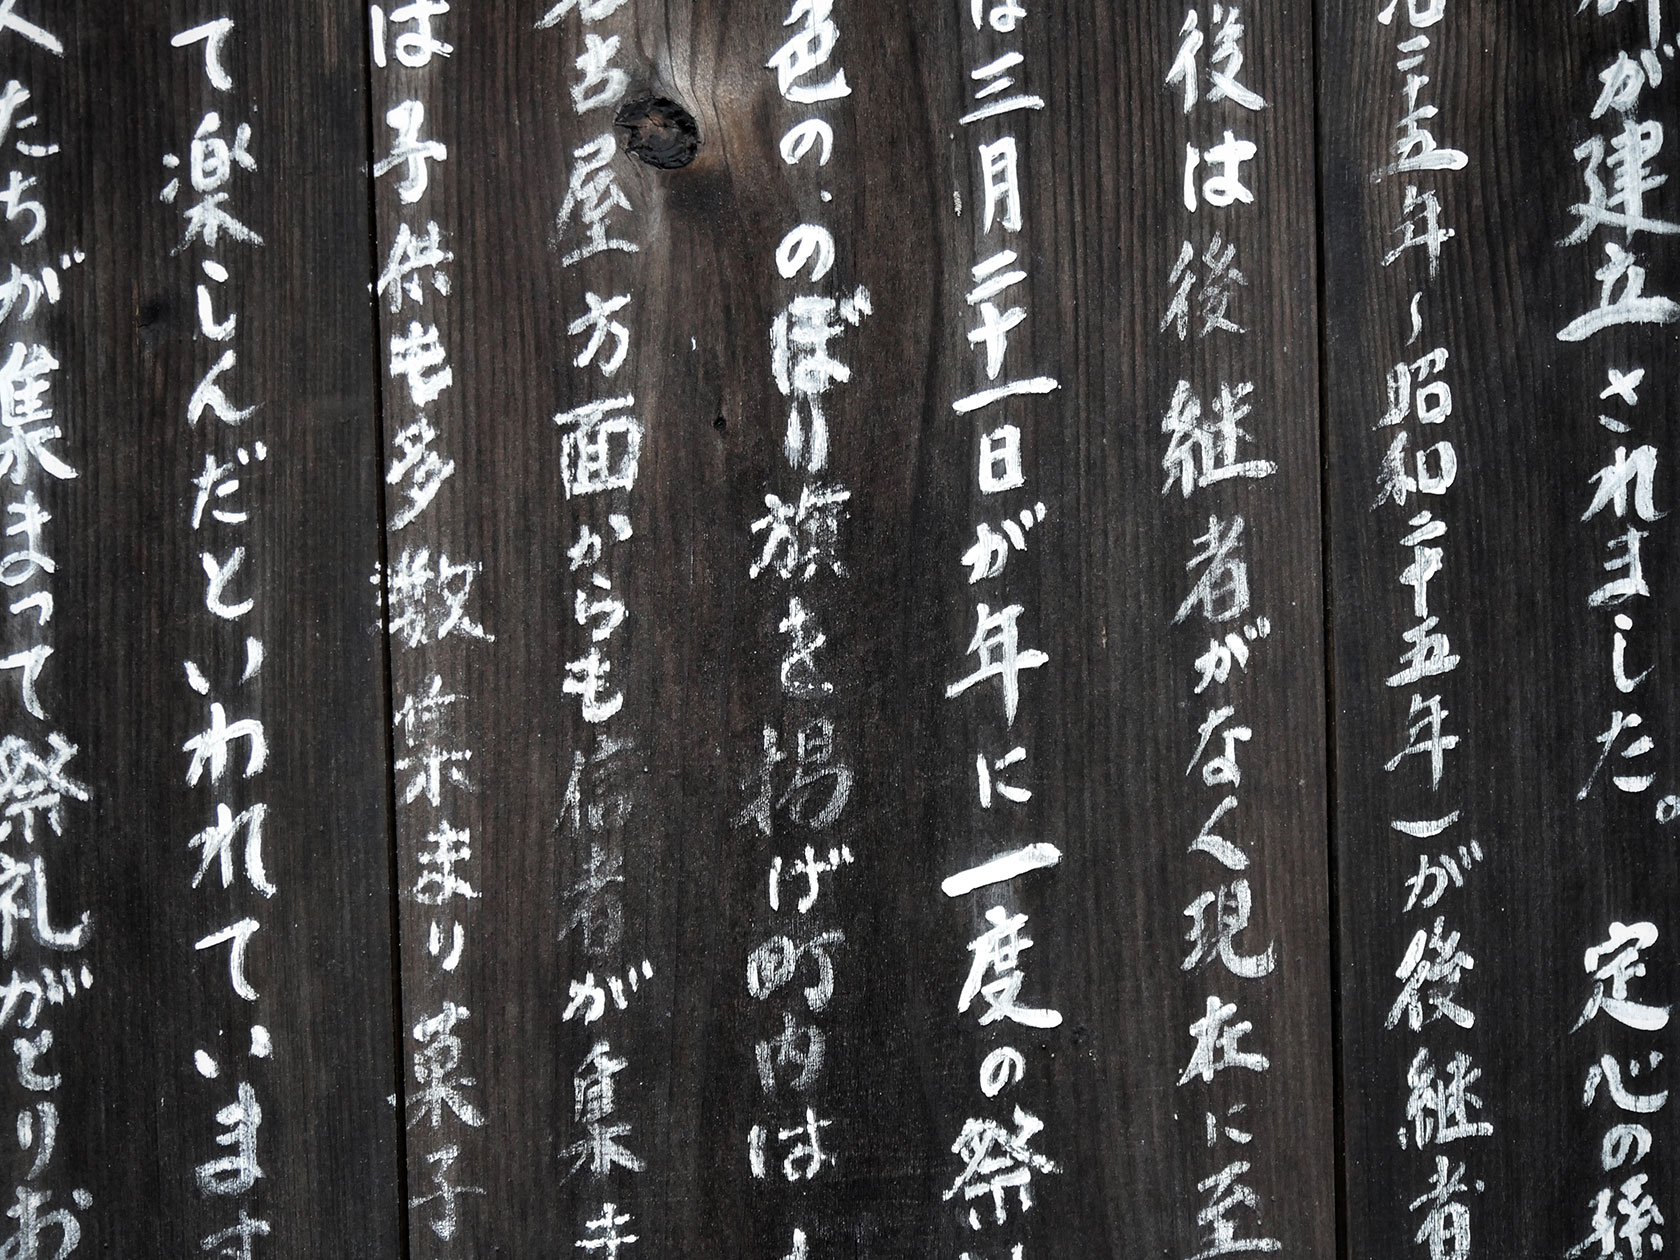 が建立されました。　定心の孫
二十五年〜昭和二十五年一が後継者
後は後継者がなく現在に至
は三月二十一日が年に一度の祭
色の・のぼり旗を揚げ町内は
名古屋方面からも信者が集ま
は子供も多数集まり菓子
て楽しんだといわれています
人たちが集まって祭礼がとりお